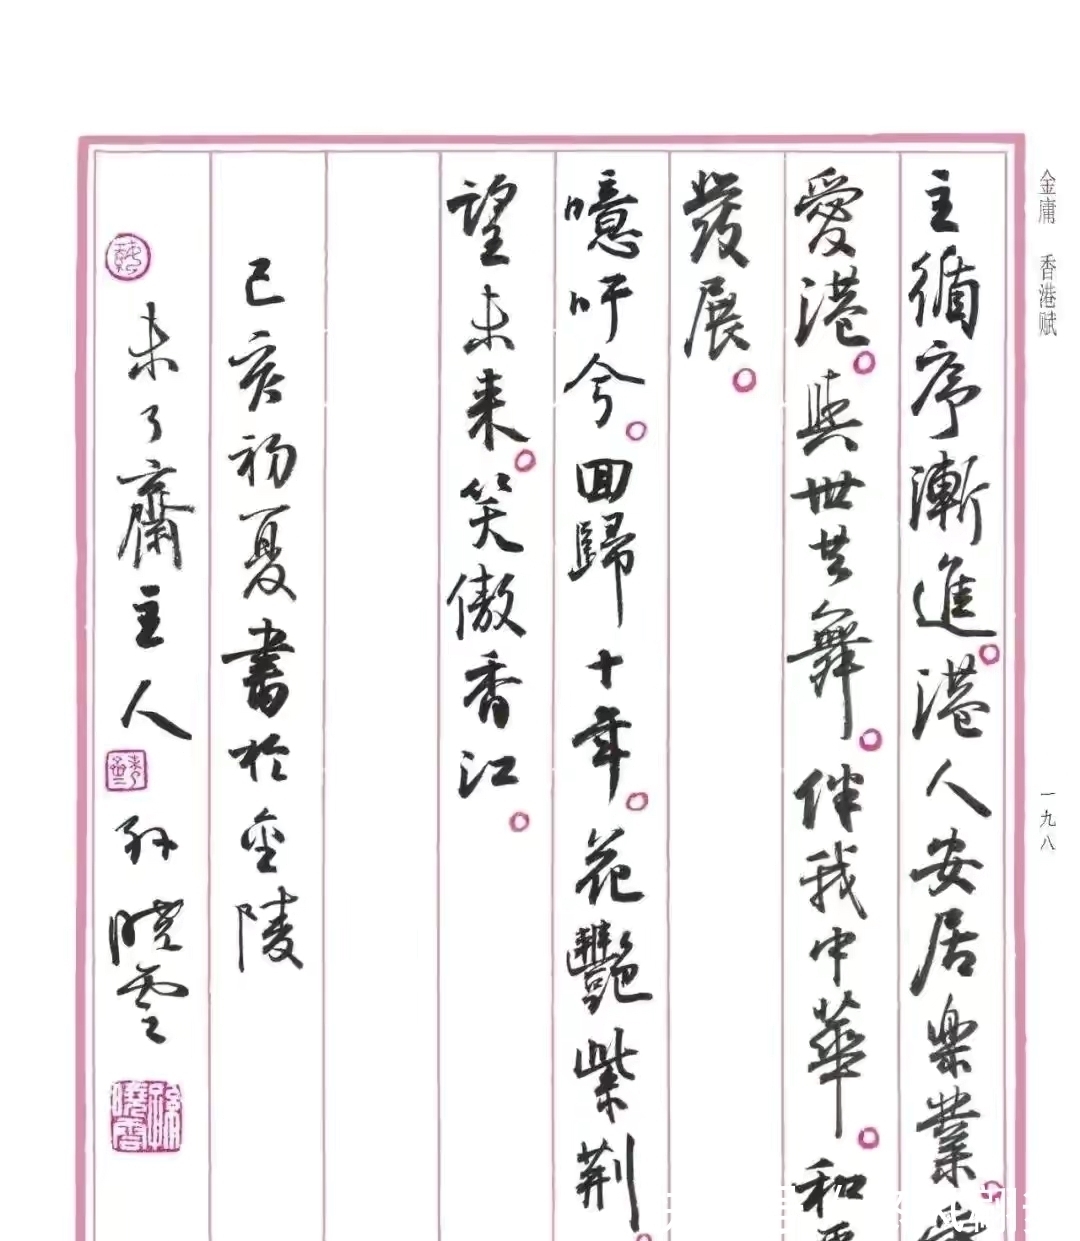 金庸 香港赋
一九八
主循序漸進。港人安居樂業
愛港。與世共舞。伴我中華。和
發展。
噫吁兮。回歸十年。花艷紫荆
望未来。笑傲香江。
己亥初夏書於金陵
未了齋主人 孙晓雲
孫曉雲